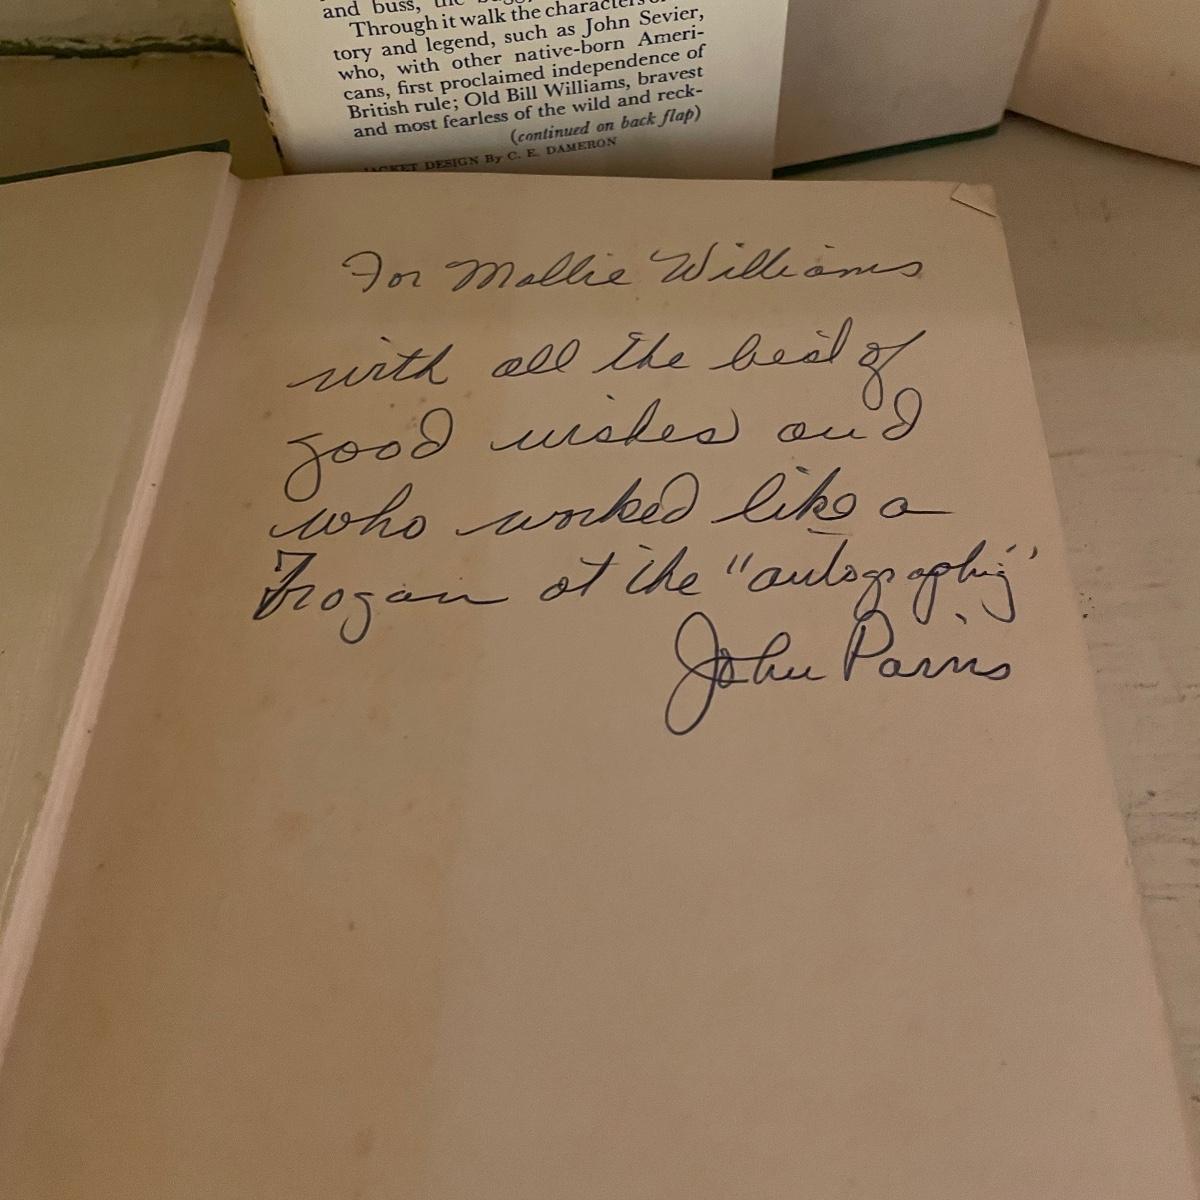 and buss, the
Through it walk the characters of
tory and legend, such as John Sevier,
who, with other native-born Ameri-
cans, first proclaimed independence of
British rule; Old Bill Williams, bravest
and most fearless of the wild and reck-
(continued on back flap)
JACKET DESIGN By C. E. DAMERON
For Mollie Williams
with all the best of
good wishes and
who worked like a
Trogan at the "autographing"
John Parris